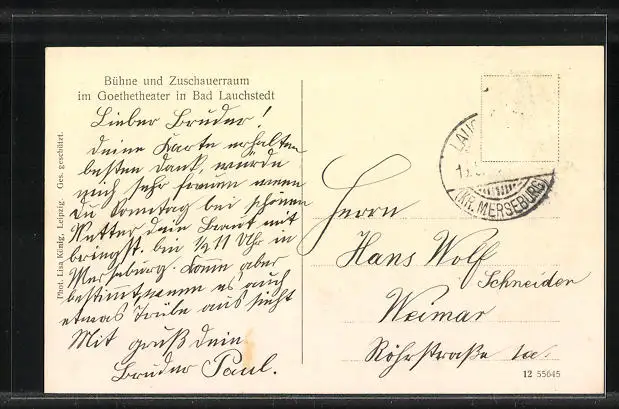 Bühne und Zuschauerraum
im Goethetheater in Bad Lauchstedt
Lieber Bruder!
deine Karte erhalten
besten Dank, würde
mich sehr freuen wenn
Du Sonntag bei schönen
Wetter dein Braut mit
bringst. bin ½ 11 Uhr in
Merseburg. Komme aber
bestimmt, wenn es auch
etwas Trübe aus sieht
Mit gruß dein
Bruder Paul.
Phot. Lisa König, Leipzig. Ges. geschützt.
LAUC
(KR. MERSEBURG)
Herrn
Hans Wolf
Schneider
Weimar
Röhrstraße 1a.
12 55645